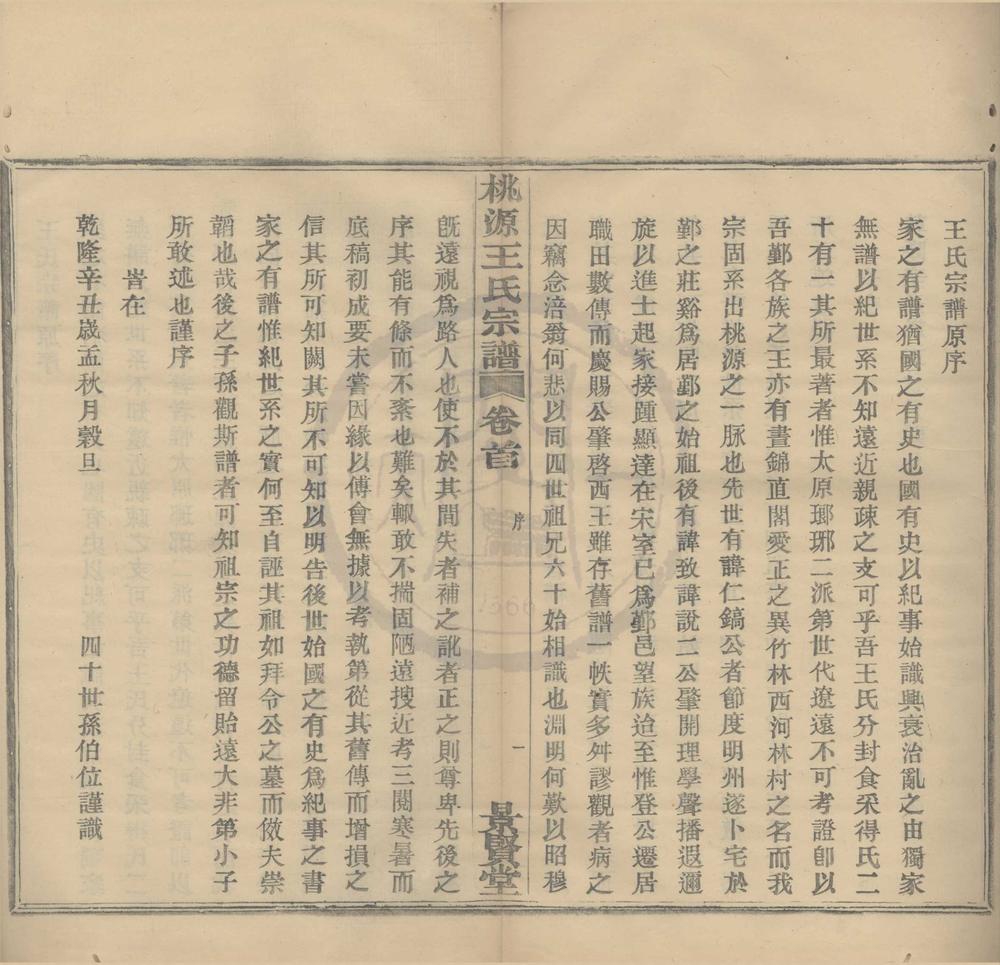 王氏宗譜原序
家之有譜猶國之有史也國有史以紀事始識興衰治亂之由獨家
無譜以紀世系不知遠近親疎之支可乎吾王氏分封食采得氏二
十有一其所最著者惟太原瑯琊二派第世代遼遠不可考證卽以
吾鄞各族之王亦有晝錦直閣愛正之異竹林西河林村之名而我
宗固系出桃源之一脉也先世有諱仁鎬公者節度明州遂卜宅於
鄞之莊谿爲居鄞之始祖後有諱致諱說二公肇開理學聲播遐邇
旋以進士起家接踵顯達在宋室已爲鄞邑望族迨至惟登公遷居
職田數傳而慶賜公肇啓西王雖存舊譜一帙實多舛謬觀者病之
因竊念涪翁何悲以同四世祖兄六十始相識也淵明何歎以昭穆
桃源王氏宗譜 卷首 序 一 景賢堂
旣遠視爲路人也使不於其間失者補之訛者正之則尊卑先後之
序其能有條而不紊也難矣輒敢不揣固陋遠搜近考三閱寒暑而
底稿初成要未嘗因緣以傅會無據以考執第從其舊傳而增損之
信其所可知闕其所不可知以明告後世始國之有史爲紀事之書
家之有譜惟紀世系之實何至自誣其祖如拜令公之墓而倣夫崇
韜也哉後之子孫觀斯譜者可知祖宗之功德留貽遠大非第小子
所敢述也謹序
皆在
乾隆辛丑歲孟秋月穀旦 四十世孫伯位謹識